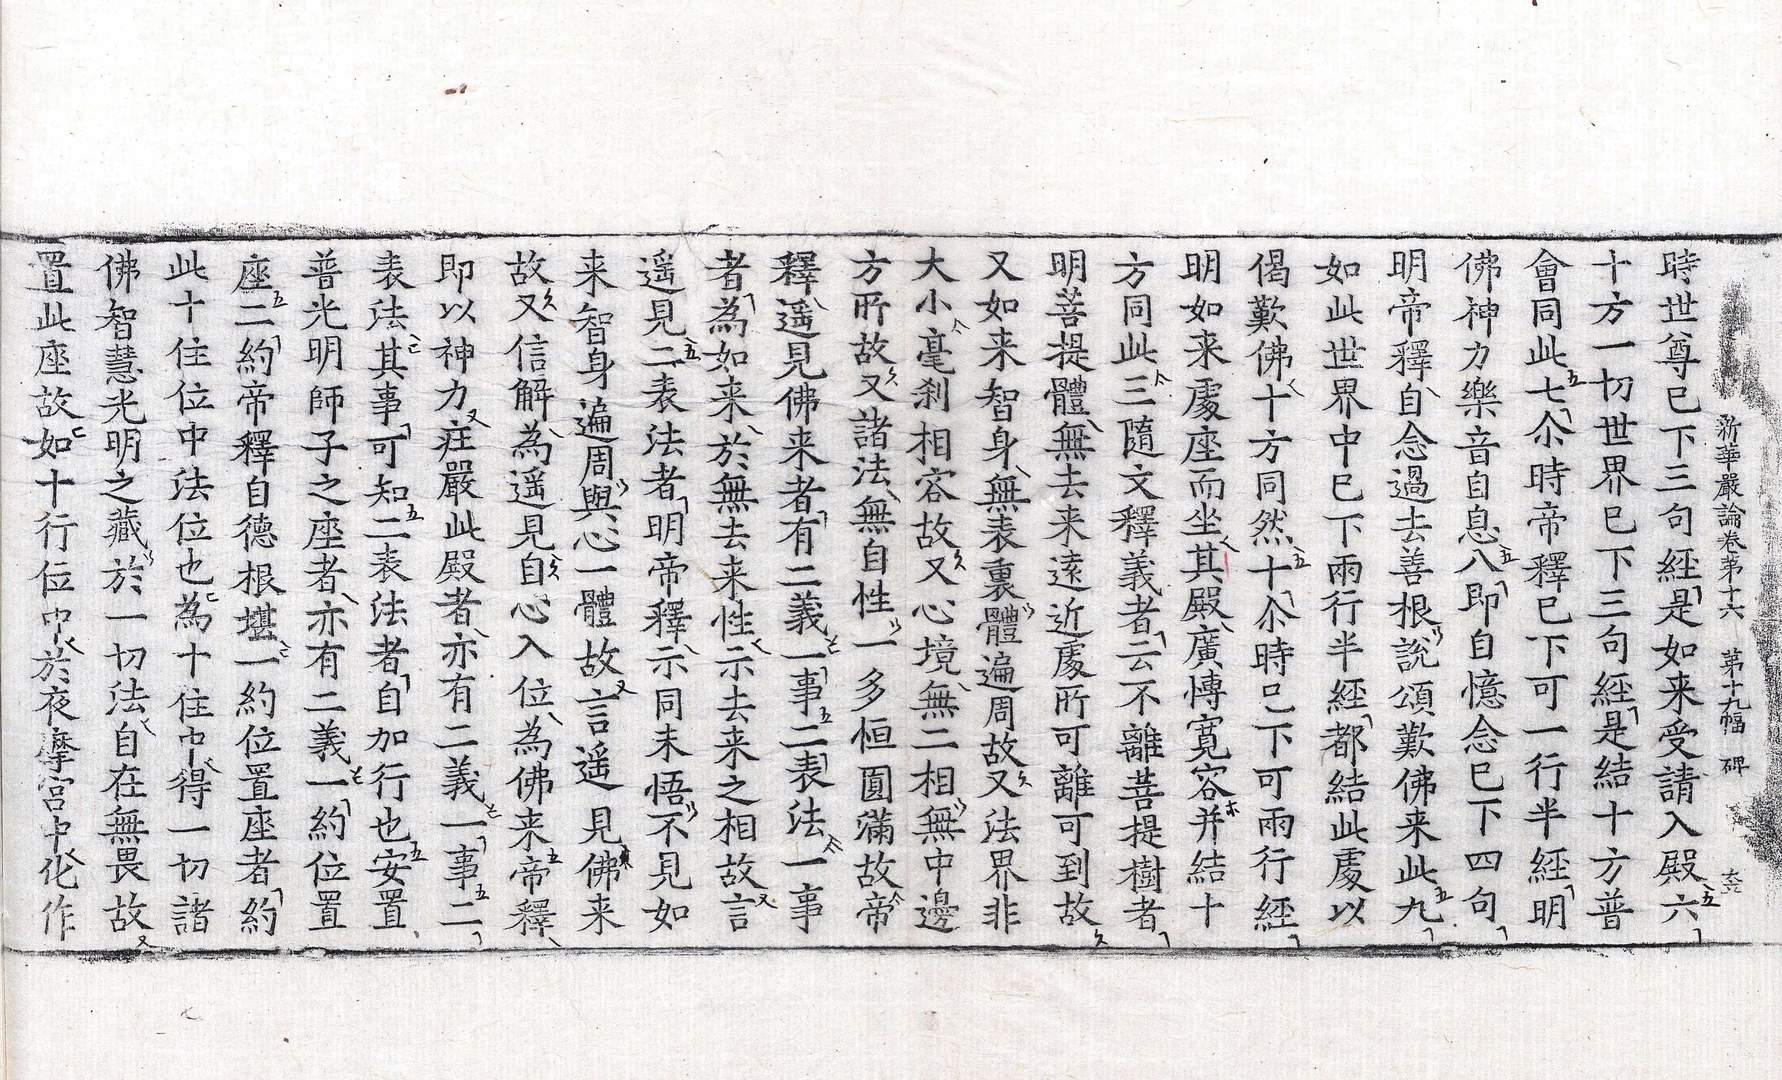 新華嚴論卷第十六　第十九幅　碑
時世尊已下三句經是如来受請入殿六
十方一切世界已下三句經是結十方普
會同此七尒時帝釋已下可一行半經明
佛神力樂音自息八即自憶念已下四句
明帝釋自念過去善根說頌歎佛来此九
如此世界中已下兩行半經都結此處以
偈歎佛十方同然十尒時已下可兩行經
明如来處座而坐其殿廣愽寛容并結十
方同此三隨文釋義者云不離菩提樹者
明菩提體無去来遠近處所可離可到故
又如来智身無表裏體遍周故又法界非
大小毫刹相容故又心境無二相無中邊
方所故又諸法無自性一多恒圓滿故帝
釋遥見佛来者有二義一事二表法一事
者為如来於無去来性示去来之相故言
遥見二表法者明帝釋示同未悟不見如
来智身遍周與心一體故言遥見佛来
故又信解為遥見自心入位為佛来帝釋
即以神力疘嚴此殿者亦有二義一事二
表法其事可知二表法者自加行也安置
普光明師子之座者亦有二義一約位置
座二約帝釋自德根堪一約位置座者約
此十住位中法位也為十住中得一切諸
佛智慧光明之藏於一切法自在無畏故
置此座故如十行位中於夜摩宫中化作